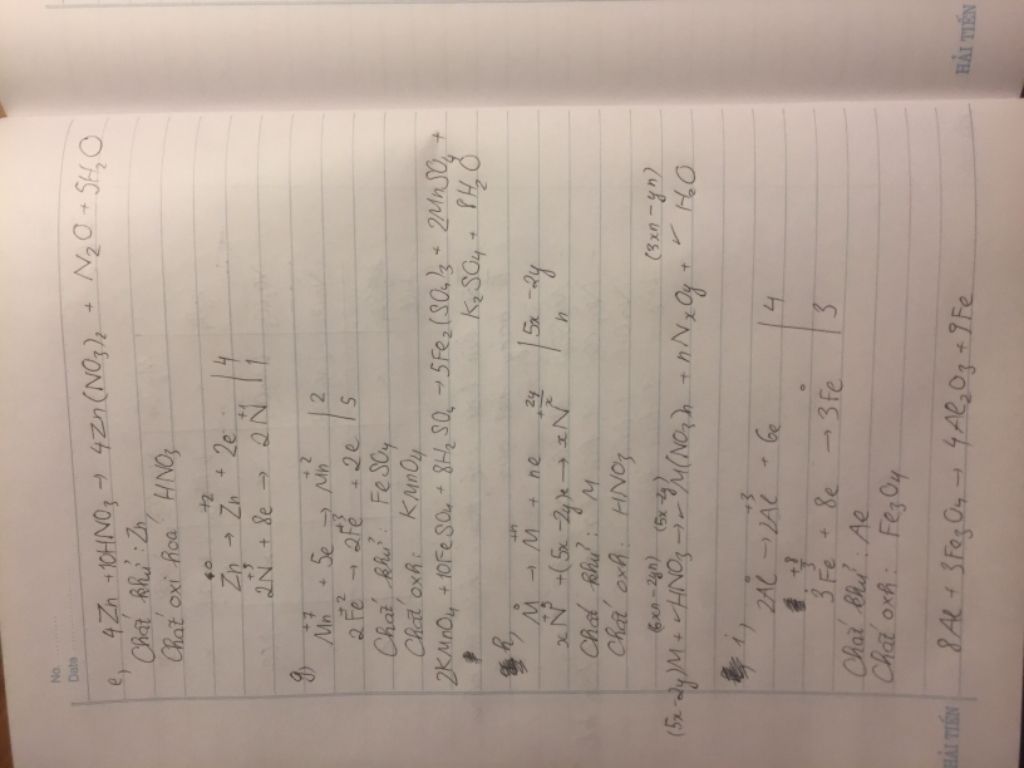 No.
Date
e, 4Zn + 10HNO3 → 4Zn(NO3)2 + N2O + 5H2O
Chất khử : Zn
Chất oxi hoá : HNO3
0 +2
Zn → Zn + 2e | 4
+5 +1
2N + 8e → 2N | 1
g, +7 +2
Mn + 5e → Mn | 2
+2 +3
2Fe → 2Fe + 2e | 5
Chất khử : FeSO4
Chất oxh : KMnO4
2KMnO4 + 10FeSO4 + 8H2SO4 → 5Fe2(SO4)3 + 2MnSO4 +
K2SO4 + 8H2O
h, 0 +n
M → M + ne | 5x - 2y
+5 +2y/x
xN + (5x - 2y)e → xN | n
Chất khử : M
Chất oxh : HNO3
(6xn - 2yn) (5x - 2y) (3xn - yn)
(5x - 2y)M + HNO3 → M(NO3)n + nNxOy + H2O
i, 0 +3
2Al → 2Al + 6e | 4
+8/3 0
3Fe + 8e → 3Fe | 3
Chất khử : Al
Chất oxh : Fe3O4
8Al + 3Fe3O4 → 4Al2O3 + 9Fe
HẢI TIẾN
HẢI TIẾN